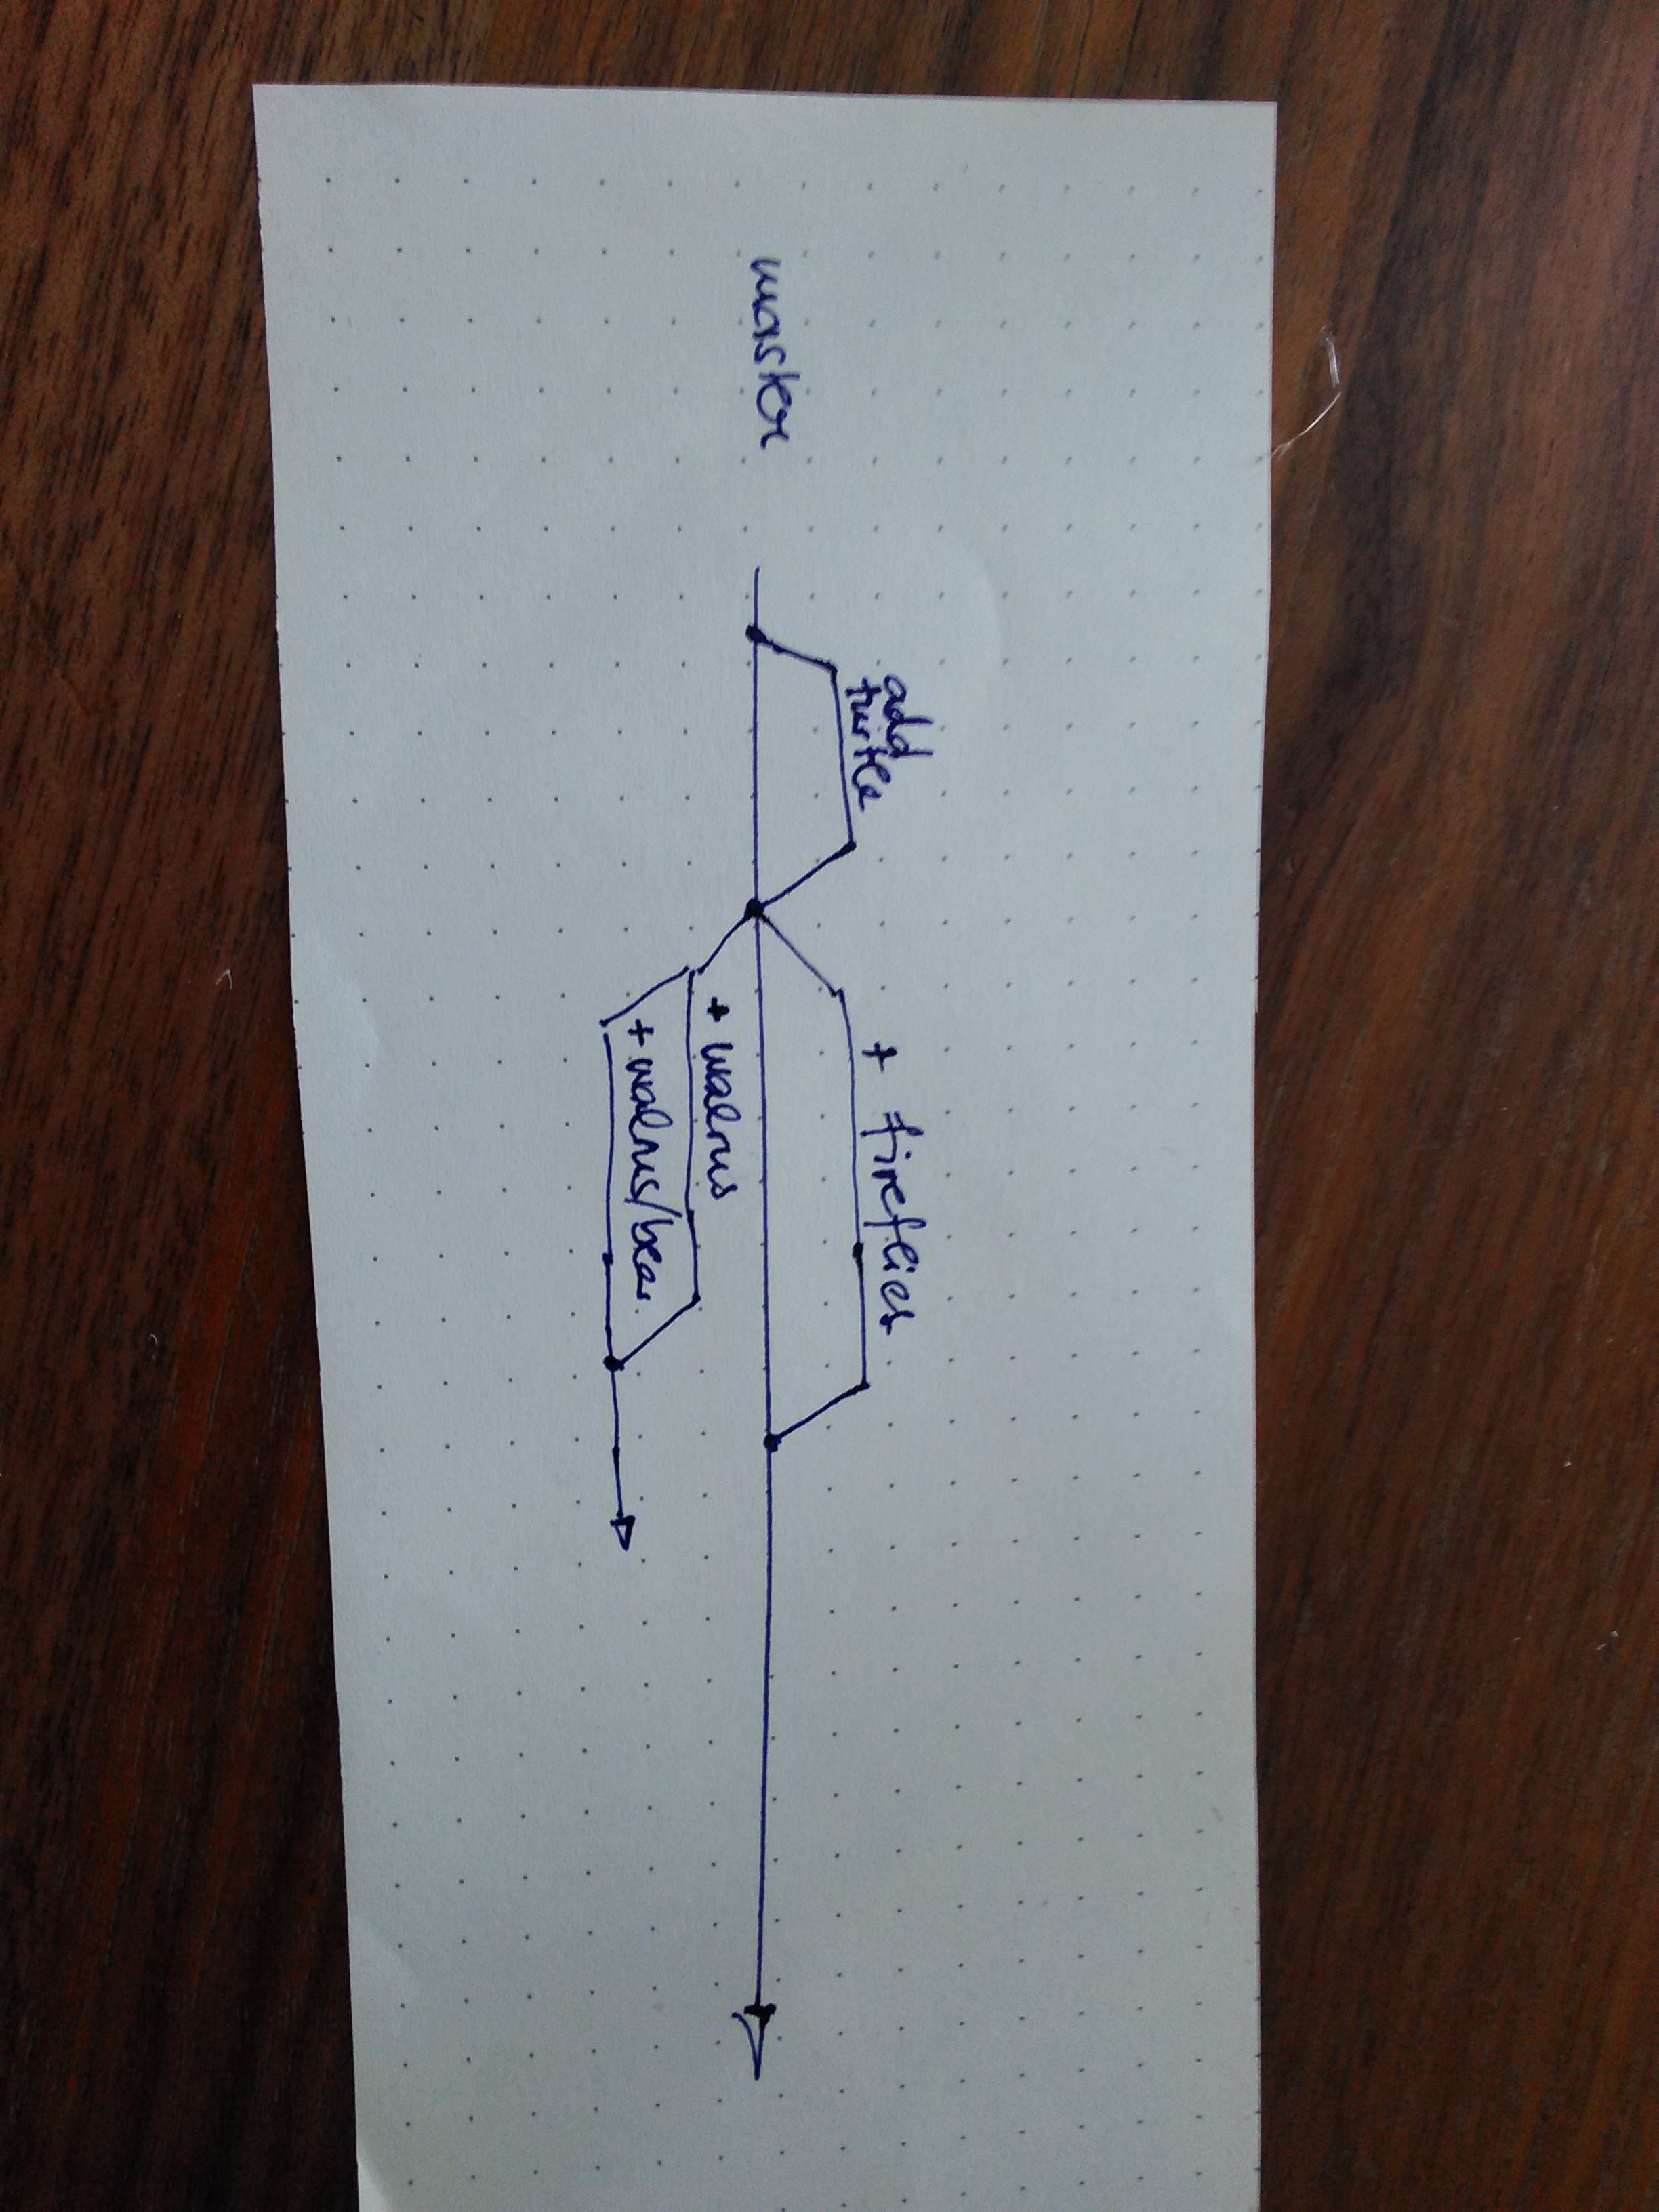 master
add
turtle
+ fireflies
+ walrus
+ walrus/bear